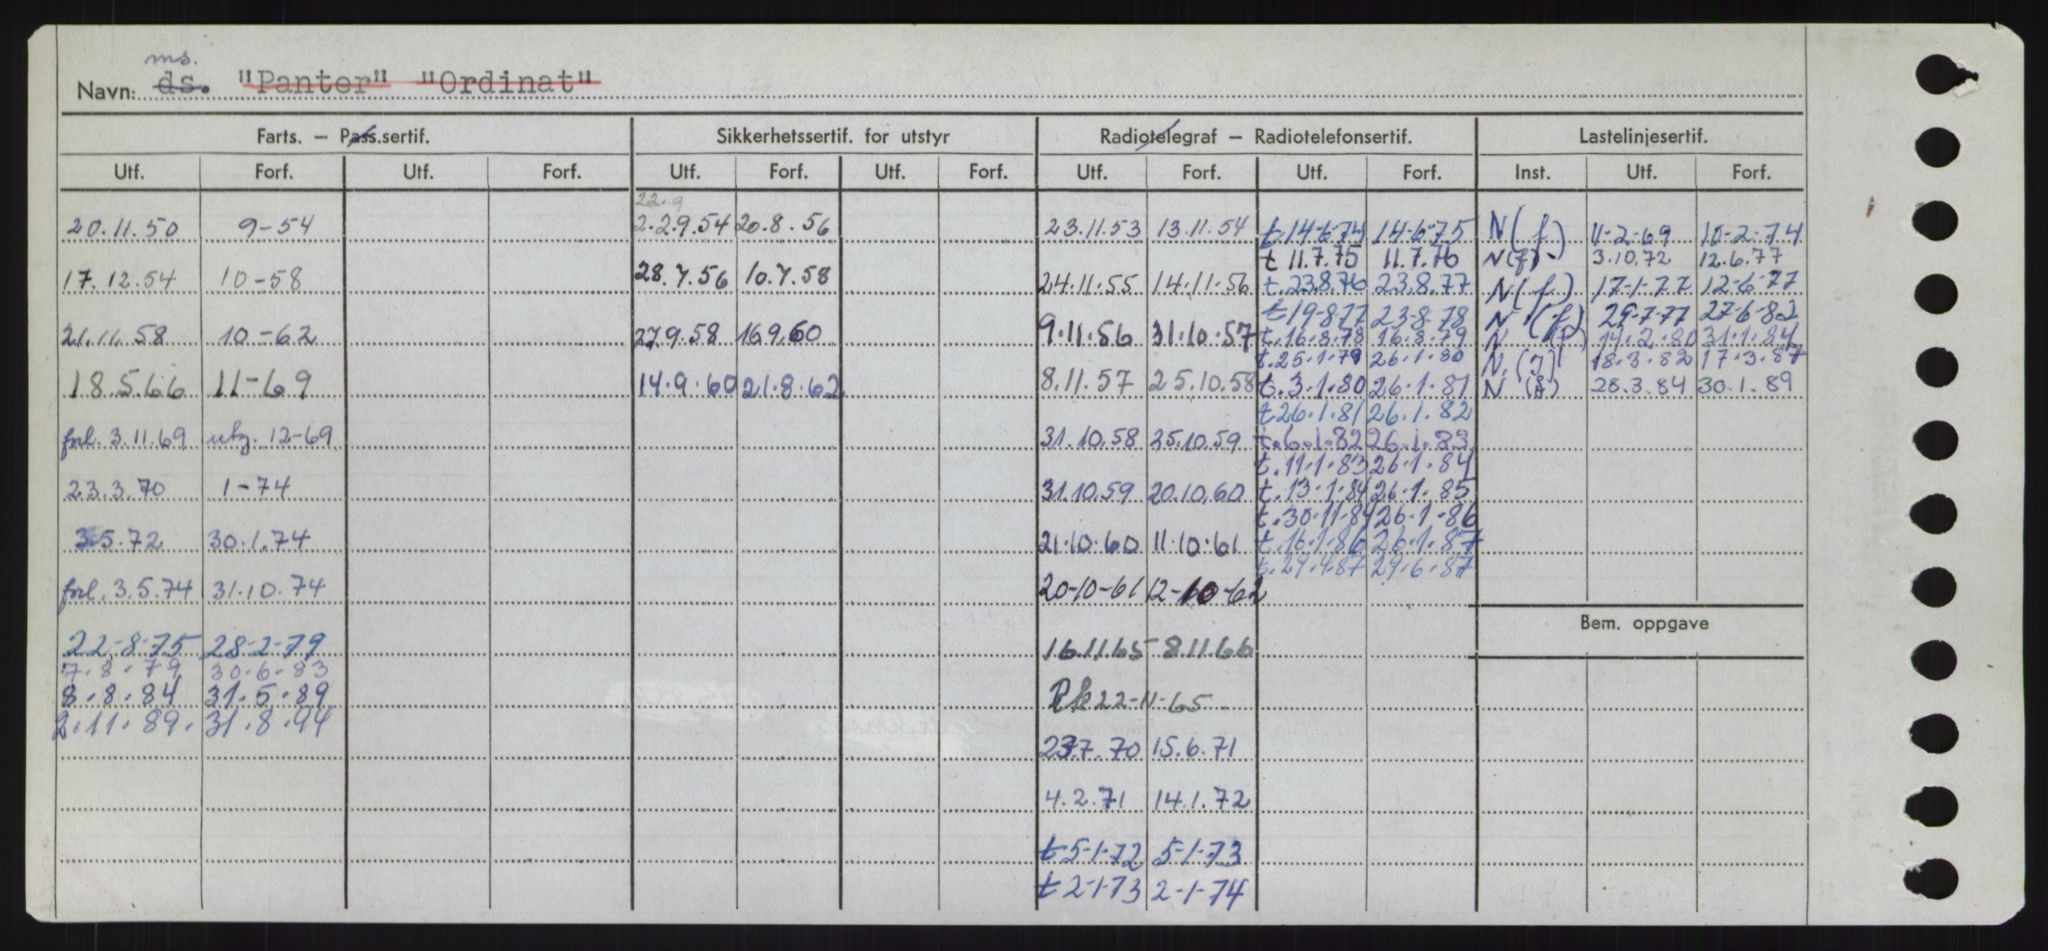 ms.
Navn: ds. "Panter" "Ordinat"
Farts. – Pass.sertif. Sikkerhetssertif. for utstyr Radiotelegraf – Radiotelefonsertif. Lastelinjesertif.
Utf. Forf. Utf. Forf. Utf. Forf. Utf. Forf. Utf. Forf. Utf. Forf. Inst. Utf. Forf.
22.9
20.11.50 9-54 2.2.9.54 20.8.56 23.11.53 13.11.54 t.14-6-74 14-6-75 N(f.) 11-2-69 10-2-74
t 11.7.75 11.7.76 N(f). 3.10.72 12.6.77
17.12.54 10-58 28.7.56 10.7.58 24.11.55 14.11.56 t.23.8.76 23.8.77 N(f.) 17-1-77 12-6-77
t 19-8-77 23-8-78 N (f) 29-7-77 27-6-82
21.11.58 10-62 27.9.58 16.9.60 9.11.56 31.10.57 t.16.8.78 16.8.79 N (f) 19.2.80 31.1.84
t.25.1.79 26.1.80 N.(J) 18.3.82 17.3.87
18.5.66 11-69 14.9.60 21.8.62 8.11.57 25.10.58 t.3.1.80 26.1.81 N 28.3.84 30.1.89
t.26.1.81 26.1.82
forl. 3.11.69 utg. 12-69 31.10.58 25.10.59 t.6.1.82 26.1.83
t.11.1.83 26.1.84
23.3.70 1-74 31.10.59 20.10.60 t.13.1.84 26.1.85
t.30.11.84 26.1.86
3.5.72 30.1.74 21.10.60 11.10.61 t.16.1.86 26.1.87
t.29.4.87 29.6.87
forl. 3.5.74 31.10.74 20-10-61 12-10-62
Bem. oppgave
22-8-75 28-2-79 16.11.65 8.11.66
7.8.79 30.6.83
8.8.84 31.5.89 Rk 22-11-65
2.11.89. 31.8.94
23.7.70 15.6.71
4.2.71 14.1.72
t 5-1-72 5-1-73
t 2-1-73 2-1-74